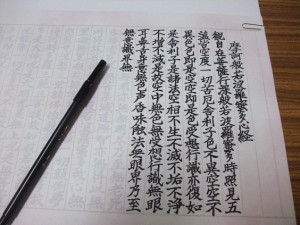 摩訶般若波羅蜜多心経
観自在菩薩行深般若波羅蜜多時照見五
蘊皆空度一切苦厄舎利子色不異空空不
異色色即是空空即是色受想行識亦復如
是舎利子是諸法空相不生不滅不垢不浄
不増不減是故空中無色無受想行識無眼
耳鼻舌身意無色声香味触法無眼界乃至
無意識界無